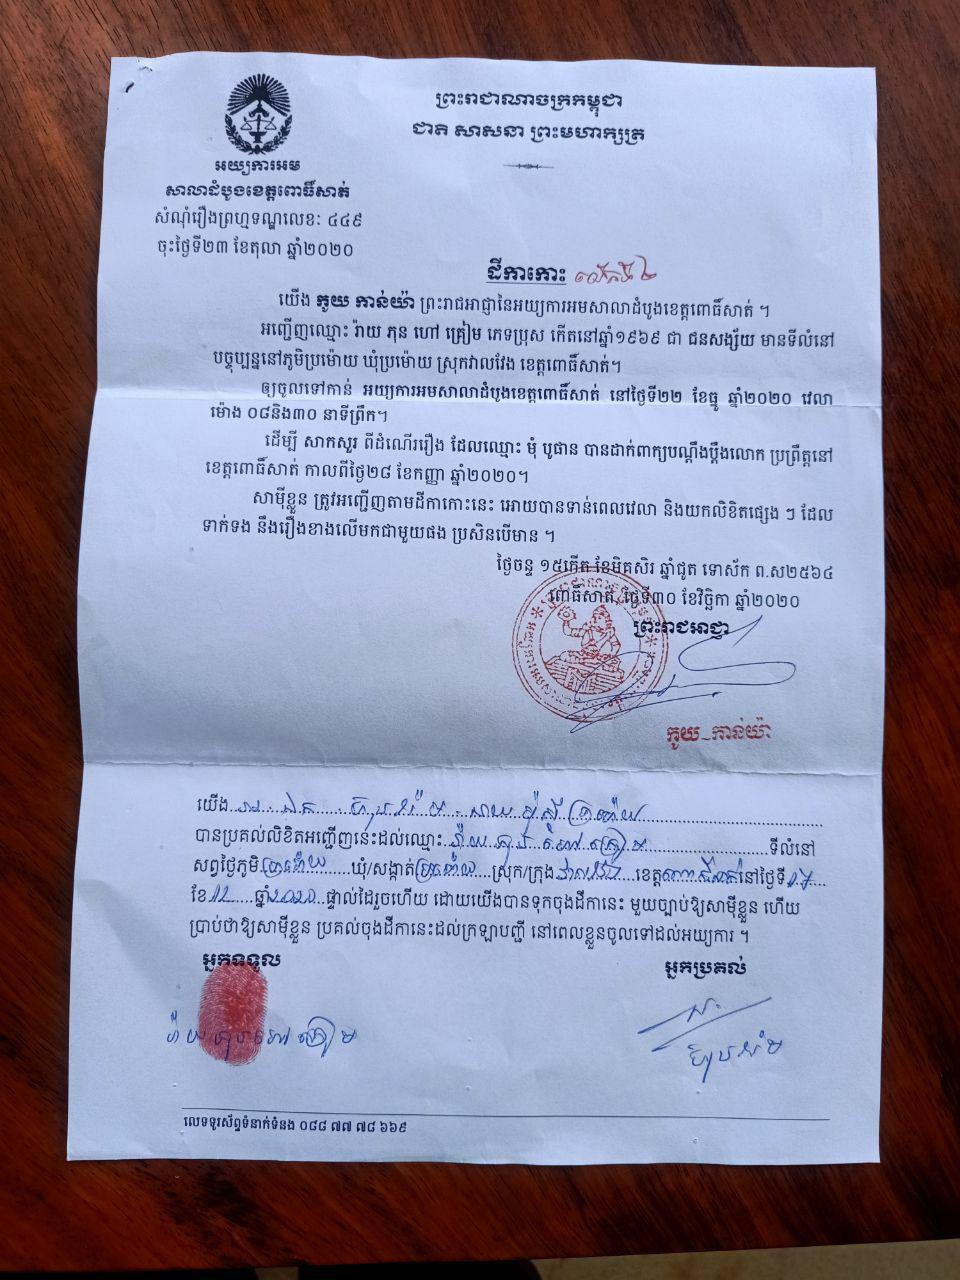 ព្រះរាជាណាចក្រកម្ពុជា
ជាតិ សាសនា ព្រះមហាក្សត្រ
អយ្យការអម
សាលាដំបូងខេត្តពោធិ៍សាត់
សំណុំរឿងព្រហ្មទណ្ឌលេខៈ ៤៤៩
ចុះថ្ងៃទី២៣ ខែតុលា ឆ្នាំ២០២០
ដីកាកោះ លើកទី២
យើង កូយ កាន់យ៉ា ព្រះរាជអាជ្ញានៃអយ្យការអមសាលាដំបូងខេត្តពោធិ៍សាត់ ។
អញ្ជើញឈ្មោះ រ៉ាយ ភុន ហៅ គ្រៀម ភេទប្រុស កើតនៅឆ្នាំ១៩៦៩ ជា ជនសង្ស័យ មានទីលំនៅ
បច្ចុប្បន្ននៅភូមិប្រម៉ោយ ឃុំប្រម៉ោយ ស្រុកវាលវែង ខេត្តពោធិ៍សាត់។
ឲ្យចូលទៅកាន់ អយ្យការអមសាលាដំបូងខេត្តពោធិ៍សាត់ នៅថ្ងៃទី២២ ខែធ្នូ ឆ្នាំ២០២០ វេលា
ម៉ោង ០៨និង៣០ នាទីព្រឹក។
ដើម្បី សាកសួរ ពីដំណើររឿង ដែលឈ្មោះ មុំ បូផាន បានដាក់ពាក្យបណ្តឹងប្តឹងលោក ប្រព្រឹត្តនៅ
ខេត្តពោធិ៍សាត់ កាលពីថ្ងៃ២៨ ខែកញ្ញា ឆ្នាំ២០២០។
សាម៉ីខ្លួន ត្រូវអញ្ជើញតាមដីកាកោះនេះ អោយបានទាន់ពេលវេលា និងយកលិខិតផ្សេង ៗ ដែល
ទាក់ទង នឹងរឿងខាងលើមកជាមួយផង ប្រសិនបើមាន ។
ថ្ងៃចន្ទ ១៥កើត ខែមិគសិរ ឆ្នាំជូត ទោស័ក ព.ស២៥៦៤
ពោធិ៍សាត់, ថ្ងៃទី៣០ ខែវិច្ឆិកា ឆ្នាំ២០២០
ព្រះរាជអាជ្ញា
កូយ-កាន់យ៉ា
យើង
បានប្រគល់លិខិតអញ្ជើញនេះដល់ឈ្មោះ រ៉ាយ ភុន ហៅ គ្រៀម ទីលំនៅ
សព្វថ្ងៃភូមិ ប្រម៉ោយ ឃុំ/សង្កាត់ ប្រម៉ោយ ស្រុក/ក្រុង វាលវែង ខេត្ត ពោធិ៍សាត់ នៅថ្ងៃទី
ខែ 12 ឆ្នាំ 2020 ផ្ទាល់ដៃរួចហើយ ដោយយើងបានទុកចុងដីកានេះ មួយច្បាប់ឱ្យសាម៉ីខ្លួន ហើយ
ប្រាប់ថាឱ្យសាម៉ីខ្លួន ប្រគល់ចុងដីកានេះដល់ក្រឡាបញ្ជី នៅពេលខ្លួនចូលទៅដល់អយ្យការ ។
អ្នកទទួល
អ្នកប្រគល់
រ៉ាយ ភុន ហៅ គ្រៀម
លេខទូរស័ព្ទទំនាក់ទំនង ០៨៨ ៧៧ ៧៨ ៦៦៩